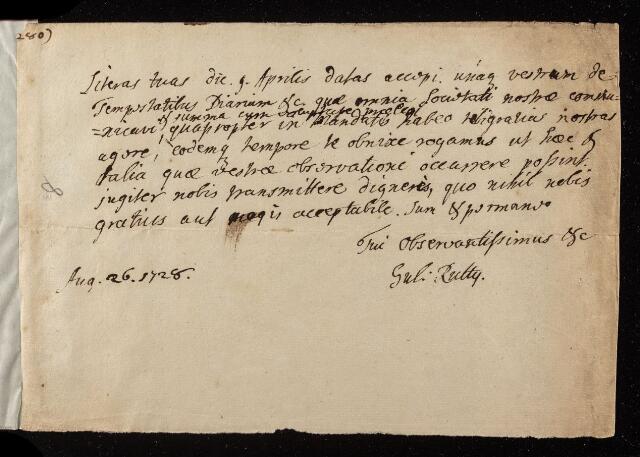 280)
Literas tuas die. 9. Aprilis datas accepi. unaq vestrum de
Tempestatibus Diarium &c. quæ omnia Societati nostræ commu-
& summa cum voluptate
=nicavi quapropter in mandatis habeo tibi gratias nostras
agere, eodemq tempore te obnixe rogamus ut hæc &
talia quæ vestræ observationi occurrere possint
jugiter nobis transmittere digneris, quo nihil nobis
gratius aut magis acceptabile. Sum & permaneo
Tui Observantissimus &c
Aug. 26. 1728. Gul: Rutty.
8